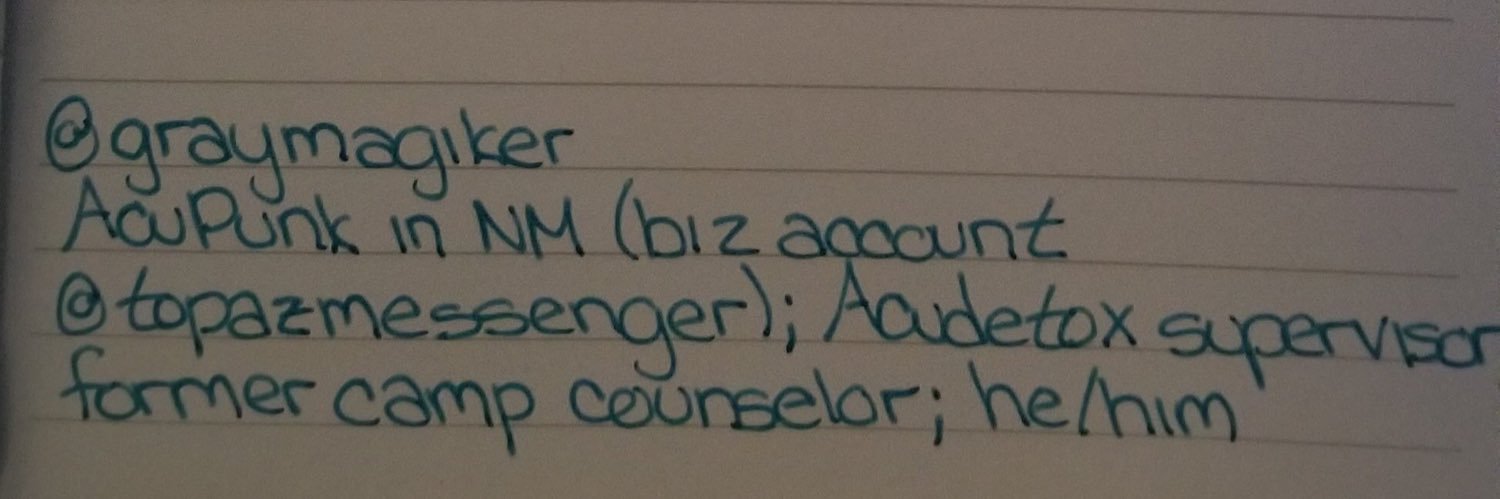 @graymagiker
AcuPunk in NM (biz account
@topazmessenger); Acudetox supervisor
former camp counselor; he/him